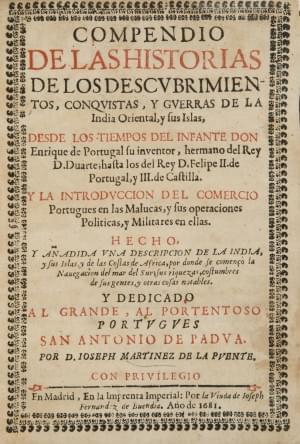 COMPENDIO
DE LAS HISTORIAS
DE LOS DESCVBRIMIEN-
TOS, CONQVISTAS, Y GVERRAS DE LA
India Oriental, y sus Islas,
DESDE LOS TIEMPOS DEL INFANTE DON
Enrique de Portugal su inventor, hermano del Rey
D. Duarte; hasta los del Rey D. Felipe II. de
Portugal, y III. de Castilla.
Y LA INTRODVCCION DEL COMERCIO
Portugues en las Malucas, y sus operaciones
Politicas, y Militares en ellas.
HECHO,
Y AÑADIDA VNA DESCRIPCION DE LA INDIA,
y sus Islas, y de las Costas de Africa, por donde se començò la
Navegacion del mar del Sur; sus riquezas, costumbres
de sus gentes, y otras cosas notables.
Y DEDICADO
AL GRANDE, AL PORTENTOSO
PORTVGVES
SAN ANTONIO DE PADVA.
POR D. IOSEPH MARTINEZ DE LA PVENTE.
CON PRIVILEGIO
En Madrid, En la Imprenta Imperial: Por la Viuda de Ioseph
Fernandez de Buendia. Año de 1681.